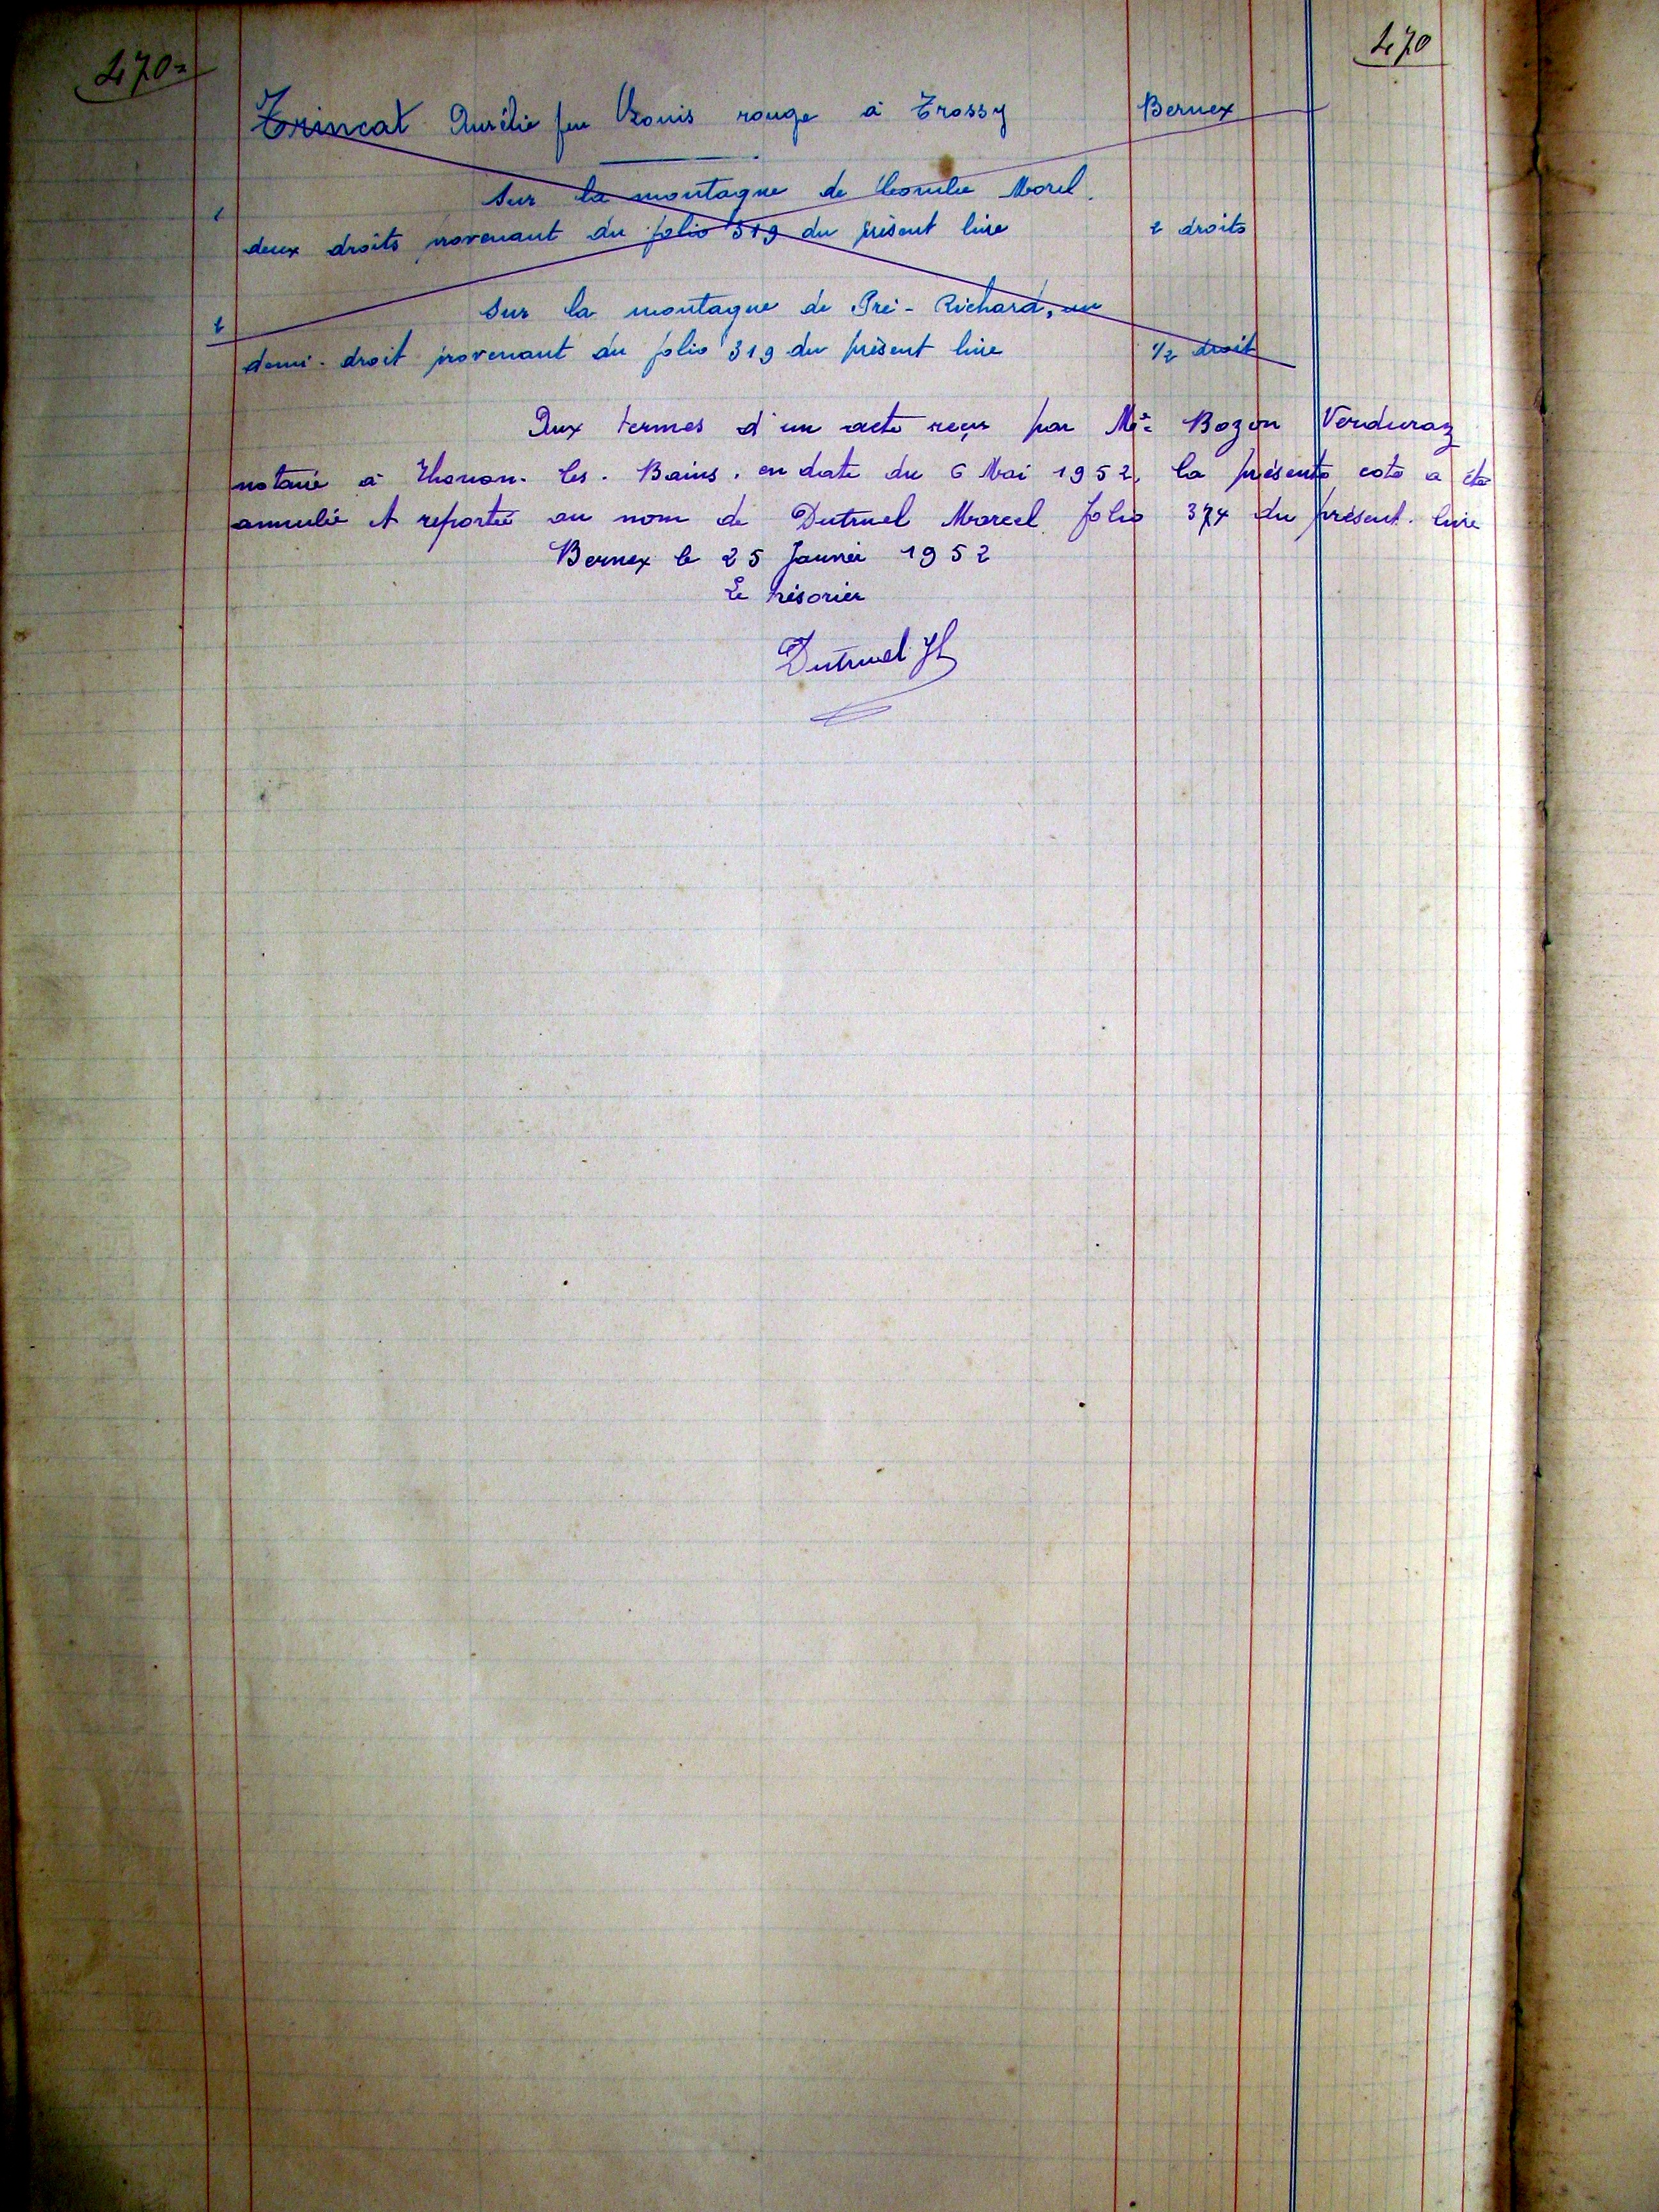 470=
470
Trincat Aurélie feu Louis rouge à Trossy Bernex
Sur la montagne de Combe Morel.
1
deux droits provenant du folio 319 du présent livre 2 droits
Sur la montagne de Pré-Richard, un
2
demi-droit provenant du folio 319 du présent livre 1/2 droit
Aux termes d'un acte reçu par Me Bozon Verduraz
notaire à Thonon-les-Bains, en date du 6 Mai 1952, la présente cote a été
annulée et reportée au nom de Dutruel Marcel folio 374 du présent livre
Bernex le 25 Janvier 1952
Le trésorier
Dutruel